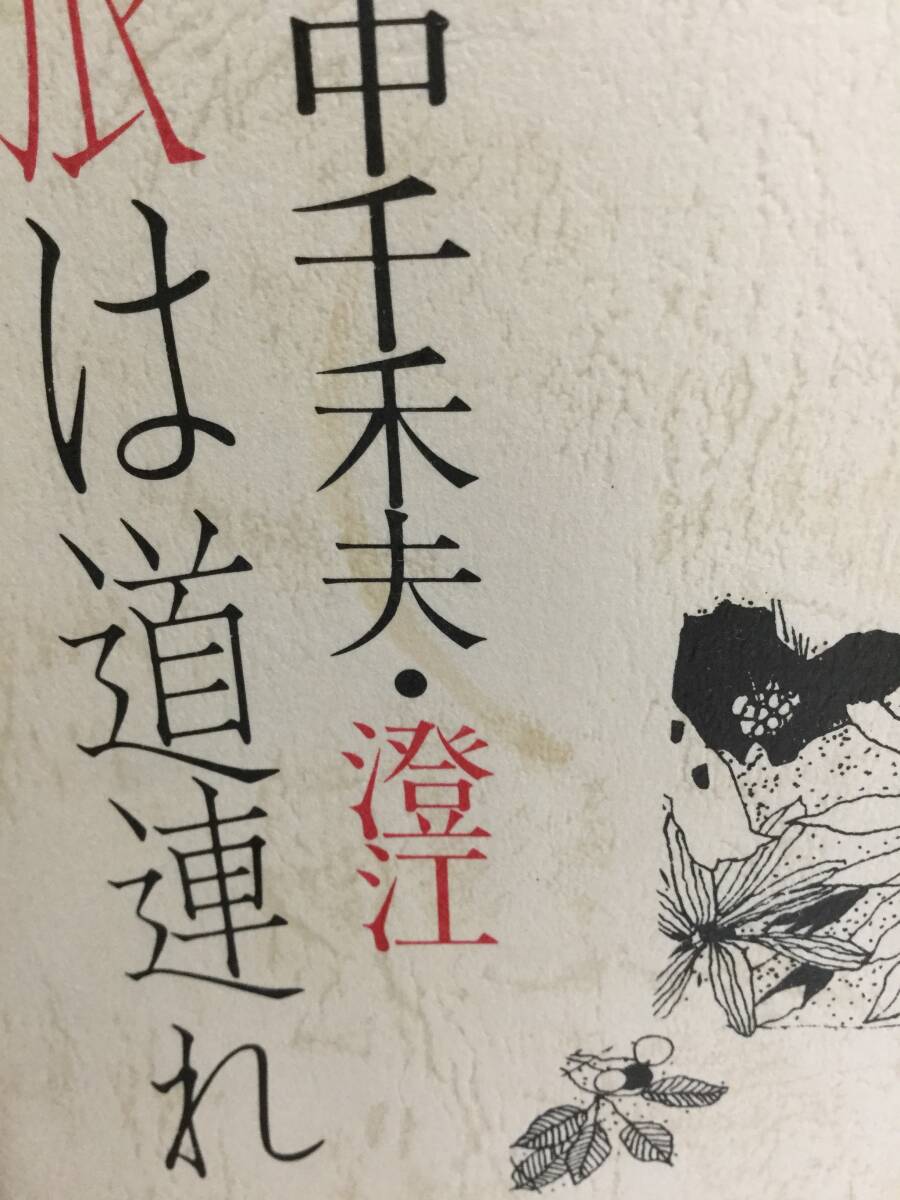 中千禾夫・澄江
旅は道連れ